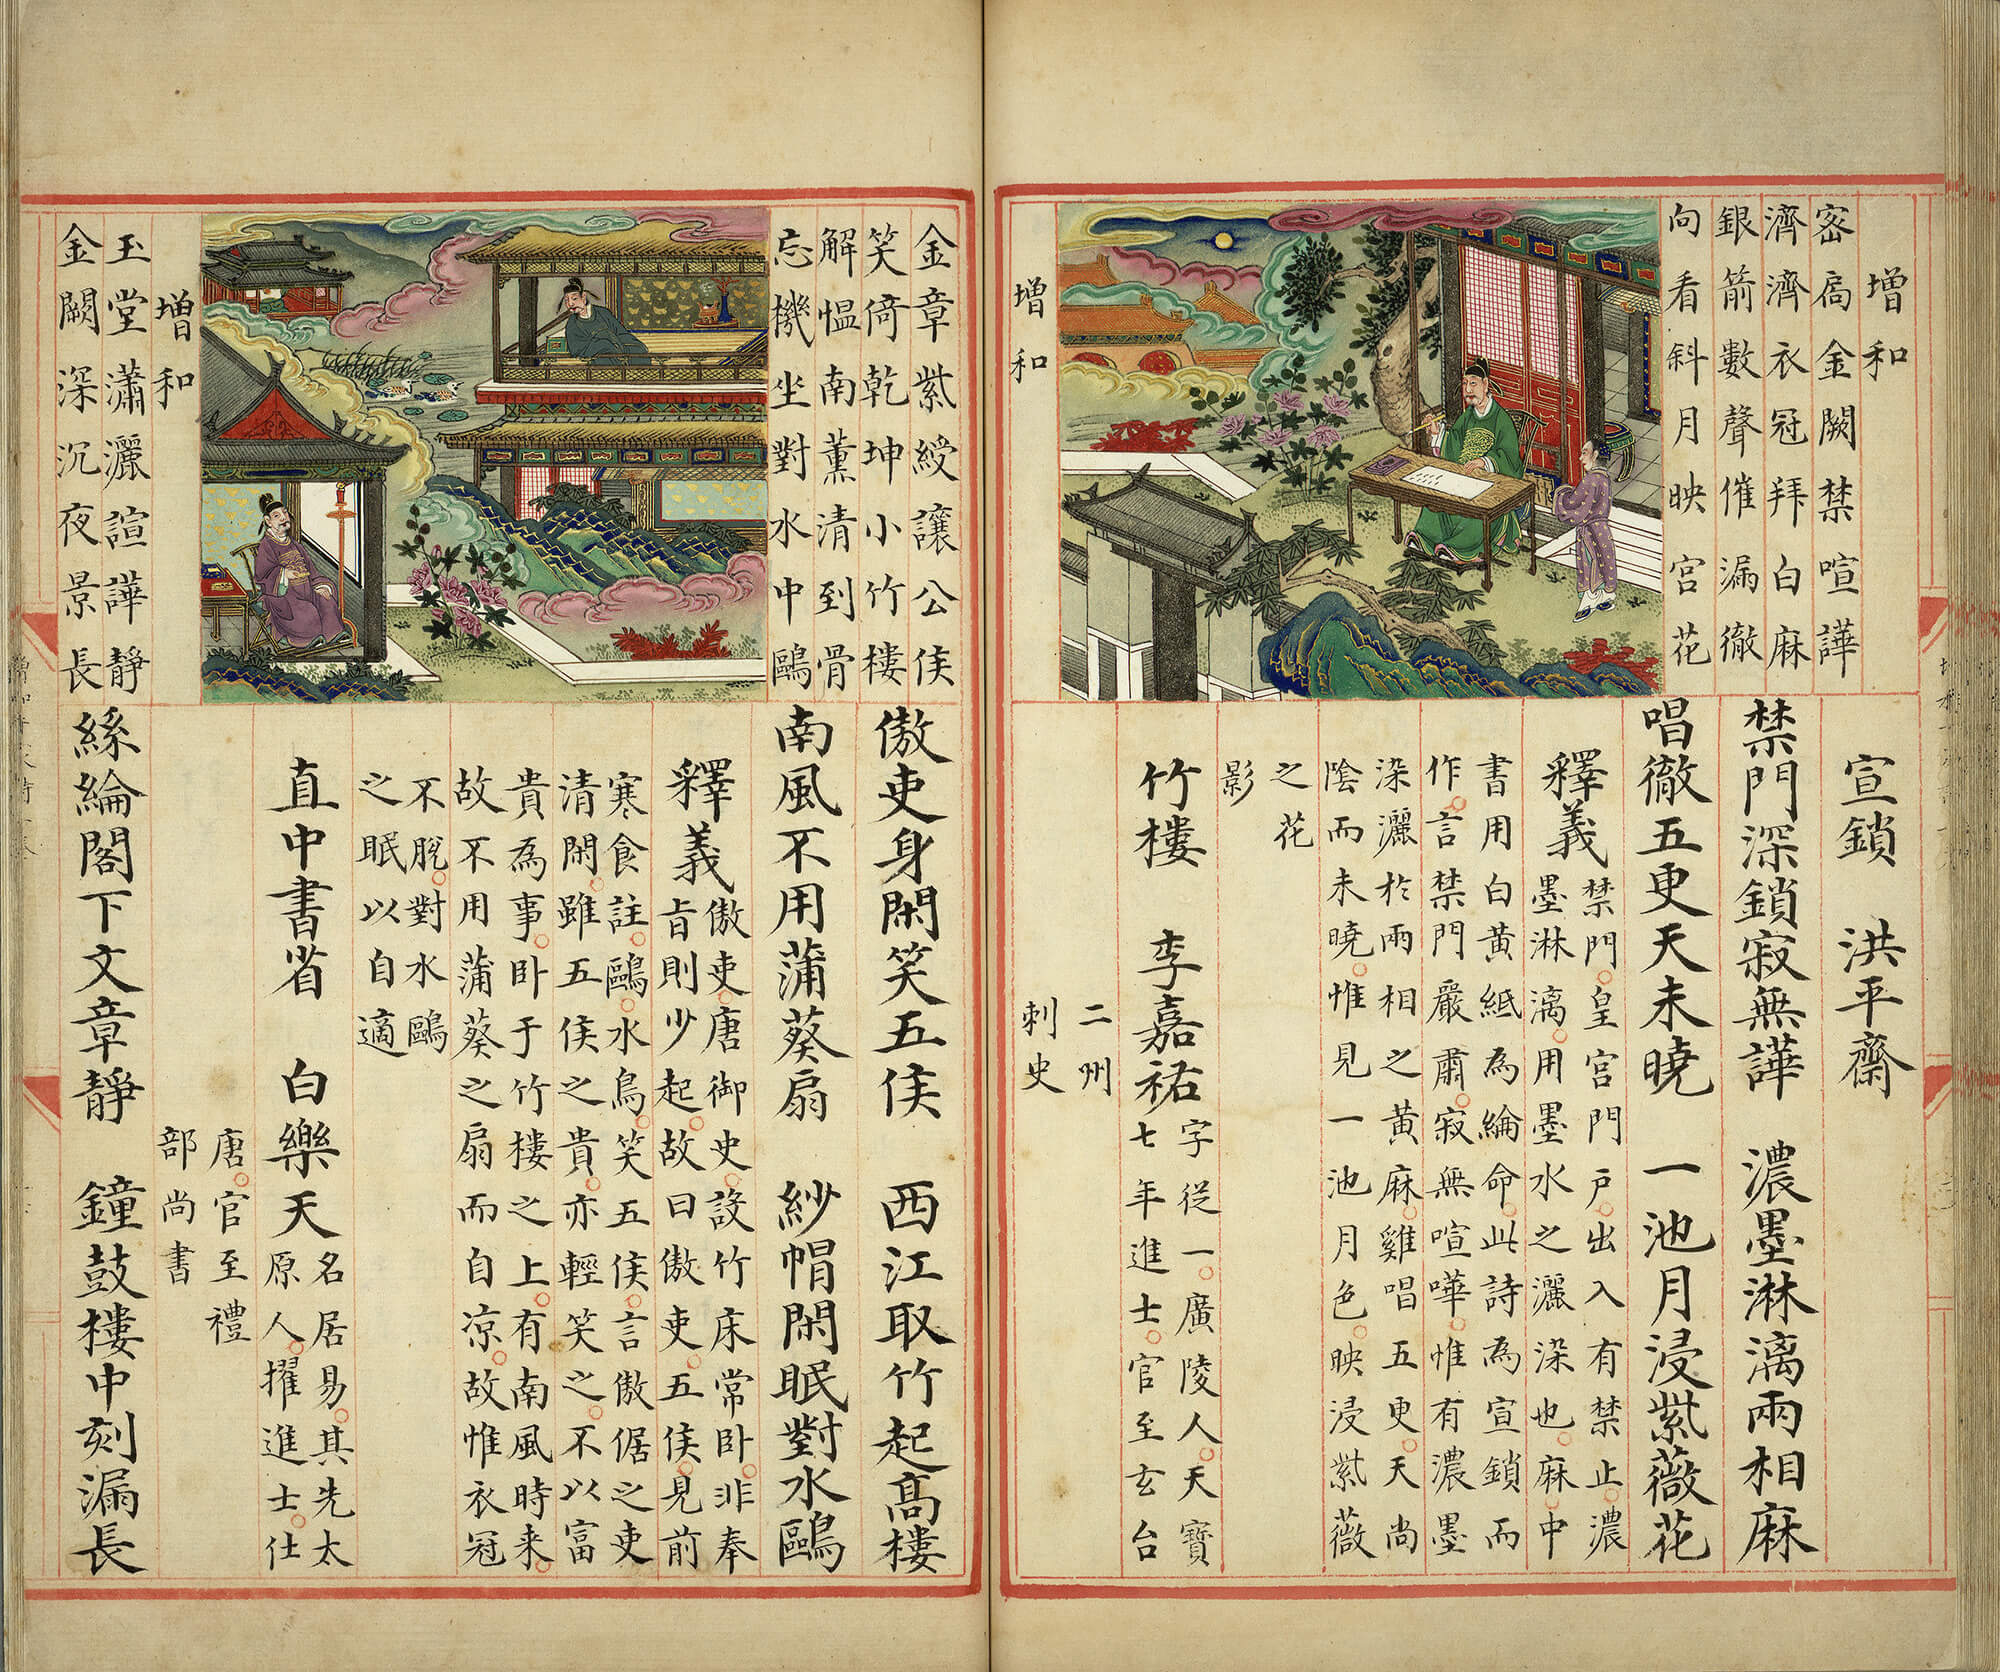 增和
密扄金闕禁喧譁
濟濟衣冠拜白麻
銀箭數聲催漏徹
向看斜月映宮花
增和
宣鎖 洪平齋
禁門深鎖寂無譁 濃墨淋漓兩相麻
唱徹五更天未曉 一池月浸紫薇花
釋義 禁門○皇宮門戶○出入有禁止○濃
墨淋漓○用墨水之灑染也○麻○中
書用白黃紙為綸命○此詩為宣鎖而
作○言禁門嚴肅○寂無喧嘩○惟有濃墨
染灑於兩相之黃麻○雞唱五更○天尚
陰而未曉○惟見一池月色○映浸紫薇
之花
影
竹樓 李嘉祐 字從一○廣陵人○天寶
七年進士○官至玄台
二州
刺史
金章紫綬讓公侯
笑倚乾坤小竹樓
解慍南薰清到骨
忘機坐對水中鷗
增和
玉堂瀟灑諠譁靜
金闕深沉夜景長
傲吏身閑笑五侯 西江取竹起高樓
南風不用蒲葵扇 紗帽閑眠對水鷗
釋義 傲吏○唐御史○設竹床常卧○非奉
旨則少起○故曰傲吏○五侯○見前
寒食註○鷗○水鳥○笑五侯○言傲倨之吏
清閑○雖五侯之貴○亦輕笑之○不以富
貴為事○卧于竹樓之上○有南風時来○
故不用蒲葵之扇而自凉○故惟衣冠
不脫○對水鷗
之眠以自適
直中書省 白樂天 名居易○其先太
原人○擢進士○仕
唐○官至禮
部尚書
絲綸閣下文章靜 鐘鼓樓中刻漏長